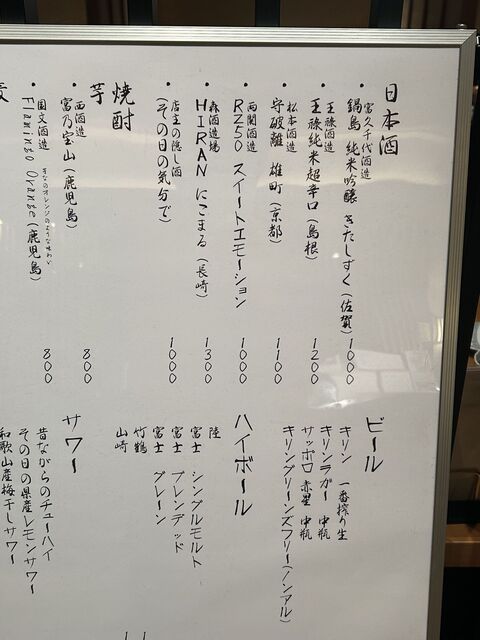 日本酒
・富久千代酒造
鍋島 純米吟醸 きたしずく(佐賀)1000
・王祿酒造
王祿純米超辛口(島根)1200
・松本酒造
守破離 雄町(京都)1100
・両関酒造
RZ50 スイートエモーション 1000
・森酒造場
HIRAN にこまる(長崎)1300
・店主の隠し酒
(その日の気分で)1000
焼酎
芋
・西酒造
富乃宝山(鹿児島)800
・国文酒造
Flamingo Orange(鹿児島)800
ビール
キリン 一番搾り生
キリンラガー 中瓶
サッポロ 赤星 中瓶
キリングリーンズフリー(ノンアル)
ハイボール
陸
富士 シングルモルト
富士 ブレンデッド
富士 グレーン
竹鶴
山崎
サワー
昔ながらのチューハイ
その日の県産レモンサワー
和歌山産梅干しサワー